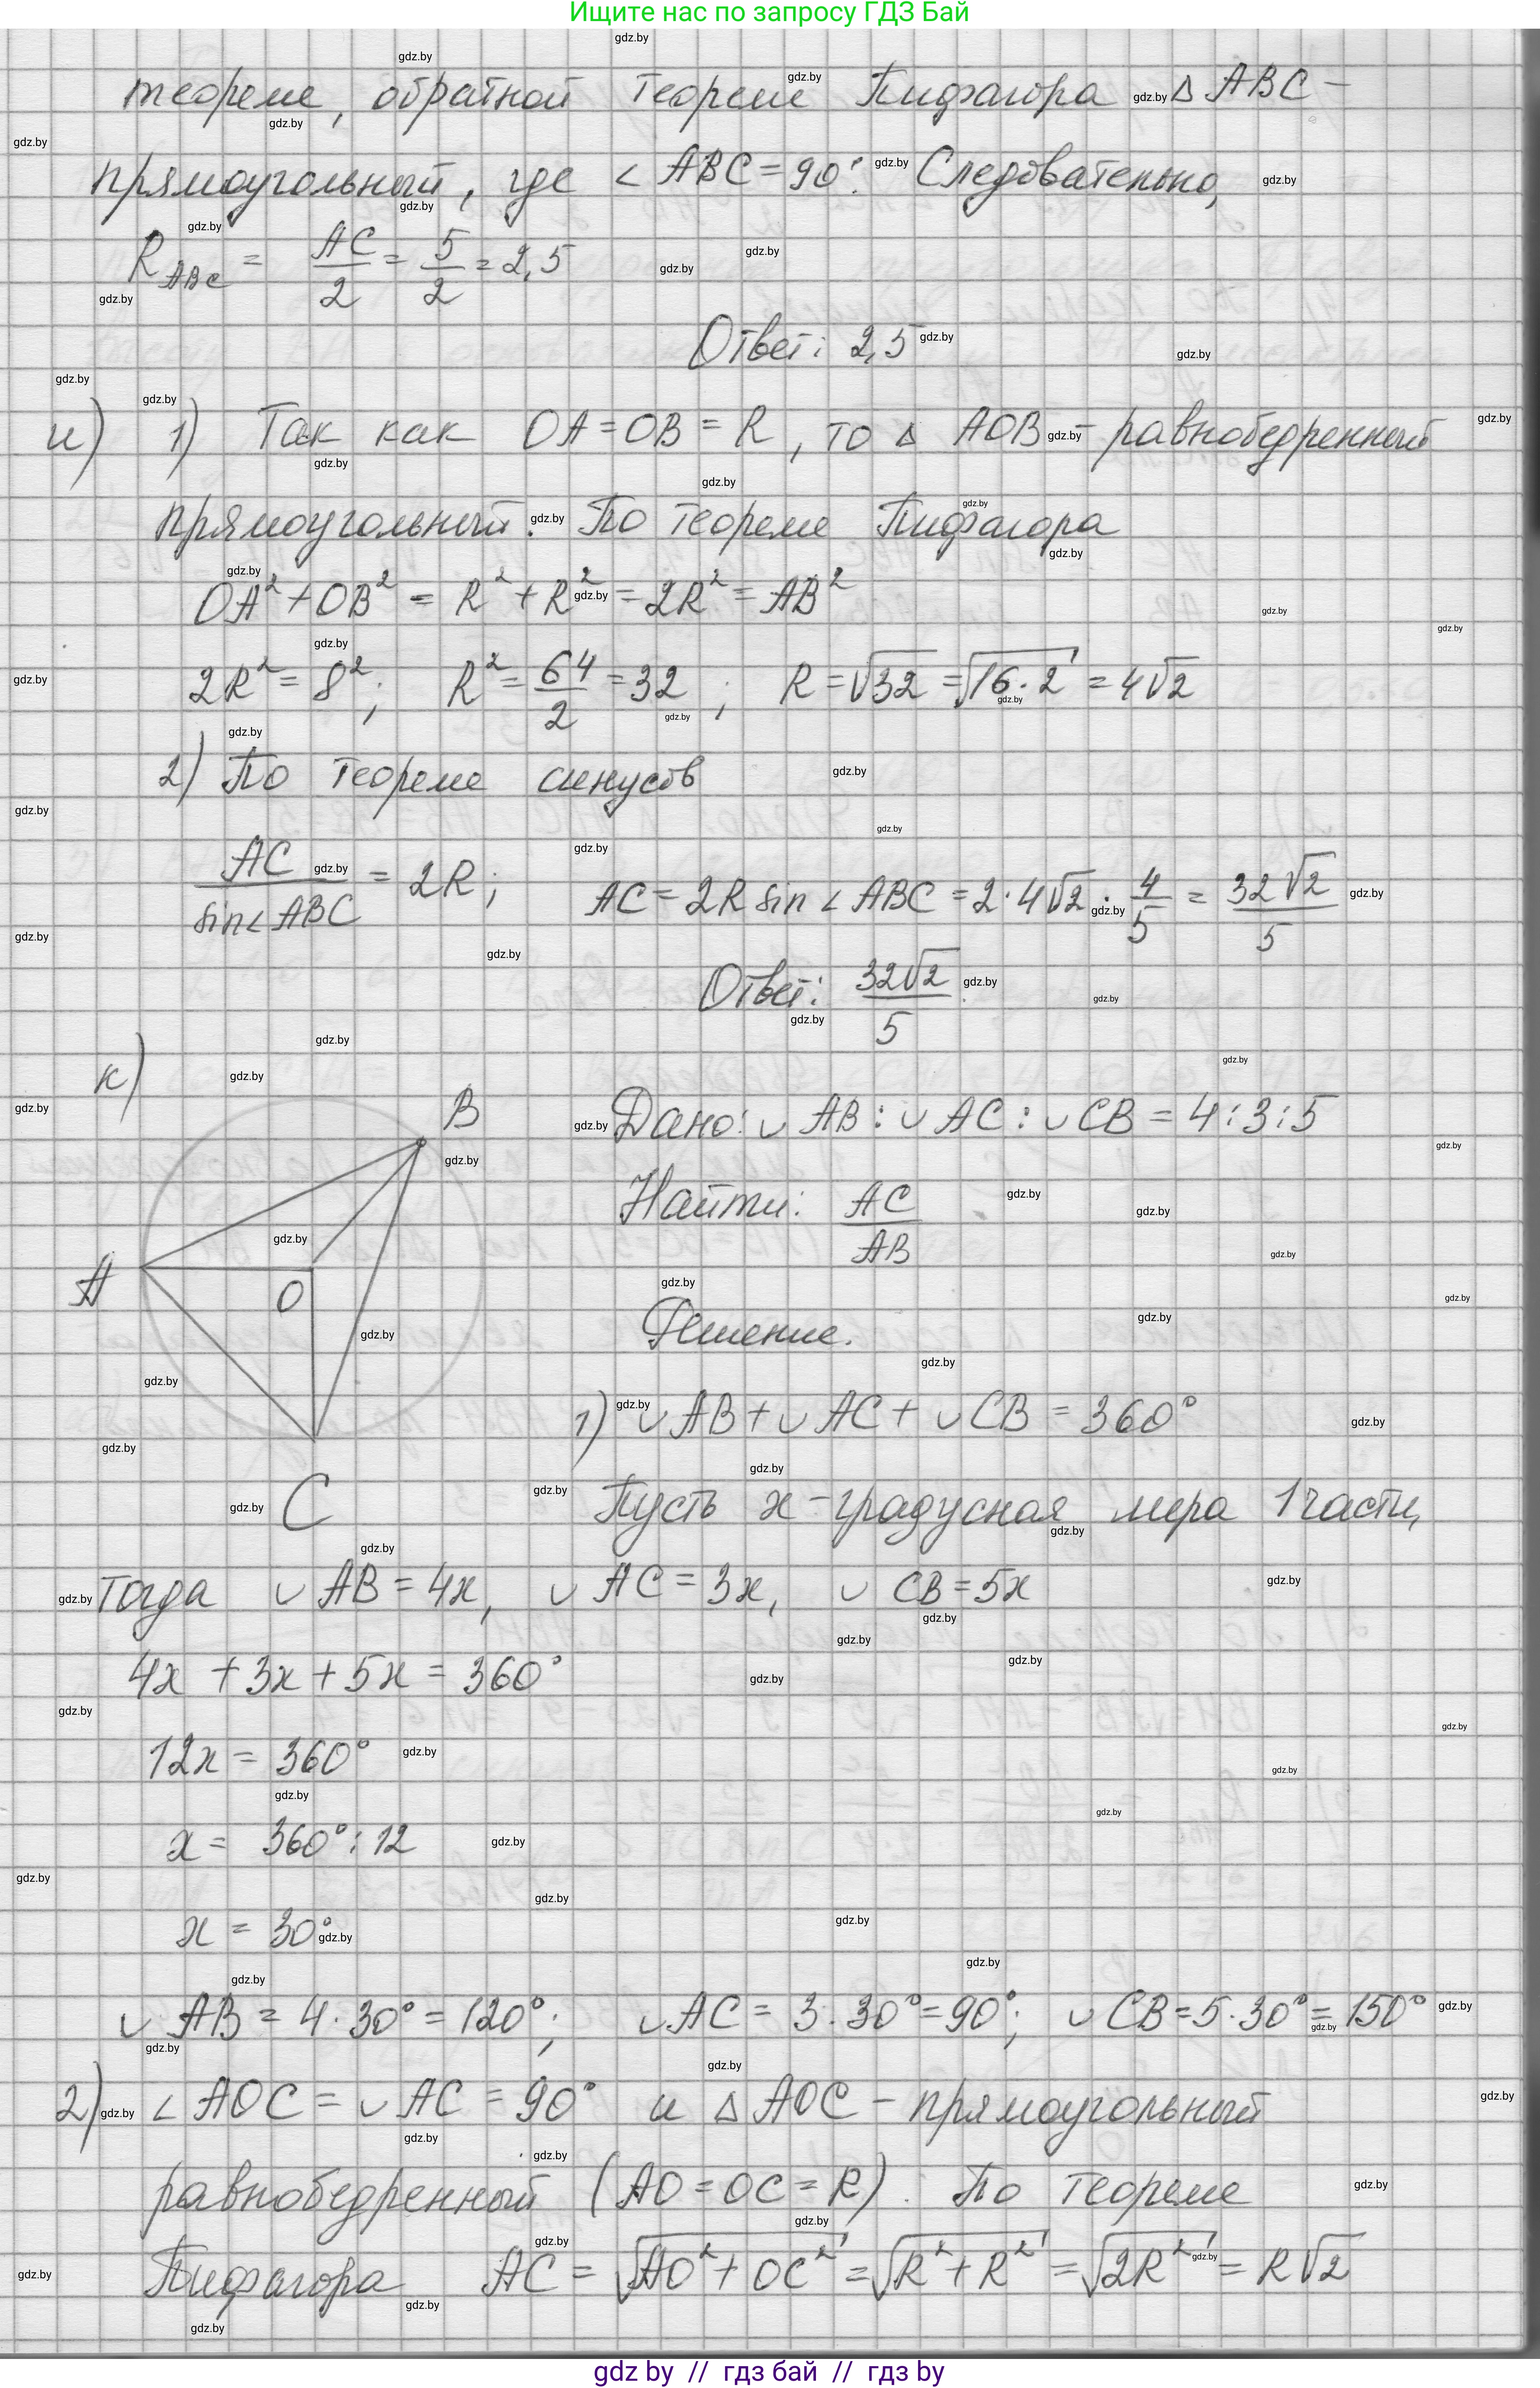 Ищите нас по запросу ГДЗ Бай
теореме, обратной теореме Пифагора △ ABC –
прямоугольный, где ∠ ABC = 90°. Следовательно,
R_ABC = AC/2 = 5/2 = 2,5
Ответ: 2,5
и) 1) Так как OA = OB = R, то △ AOB – равнобедренный
прямоугольный. По теореме Пифагора
OA² + OB² = R² + R² = 2R² = AB²
2R² = 8²; R² = 64/2 = 32; R = √32 = √16·2 = 4√2
2) По теореме синусов
AC/sin∠ABC = 2R; AC = 2R sin ∠ ABC = 2·4√2 · 4/5 = 32√2/5
Ответ: 32√2/5
к)
B
A
O
C
Дано: ∪ AB : ∪ AC : ∪ CB = 4:3:5
Найти: AC/AB
Решение.
1) ∪ AB + ∪ AC + ∪ CB = 360°
Пусть x – градусная мера 1 части,
тогда ∪ AB = 4x, ∪ AC = 3x, ∪ CB = 5x
4x + 3x + 5x = 360°
12x = 360°
x = 360° : 12
x = 30°
∪ AB = 4·30° = 120°; ∪ AC = 3·30° = 90°; ∪ CB = 5·30° = 150°
2) ∠ AOC = ∪ AC = 90° и △ AOC – прямоугольный
равнобедренный (AO = OC = R). По теореме
Пифагора AC = √AO² + OC² = √R² + R² = √2R² = R√2
gdz by // гдз бай // gdz by